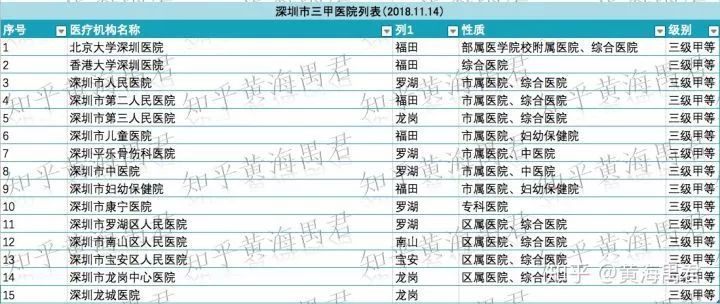 深圳市三甲医院列表(2018.11.14)
序号 医疗机构名称 列1 性质 级别
1 北京大学深圳医院 福田 部属医学院校附属医院、综合医院 三级甲等
2 香港大学深圳医院 福田 综合医院 三级甲等
3 深圳市人民医院 罗湖 市属医院、综合医院 三级甲等
4 深圳市第二人民医院 福田 市属医院、综合医院 三级甲等
5 深圳市第三人民医院 龙岗 市属医院、综合医院 三级甲等
6 深圳市儿童医院 福田 市属医院、妇幼保健院 三级甲等
7 深圳平乐骨伤科医院 罗湖 市属医院、中医院 三级甲等
8 深圳市中医院 罗湖 市属医院、中医院 三级甲等
9 深圳市妇幼保健院 福田 市属医院、妇幼保健院 三级甲等
10 深圳市康宁医院 罗湖 专科医院 三级甲等
11 深圳市罗湖区人民医院 罗湖 区属医院、综合医院 三级甲等
12 深圳市南山区人民医院 南山 区属医院、综合医院 三级甲等
13 深圳市宝安区人民医院 宝安 区属医院、综合医院 三级甲等
14 深圳市龙岗中心医院 龙岗 区属医院、综合医院 三级甲等
15 深圳龙城医院 龙岗 三级甲等
知乎黄海禺君
知乎 @黄海禺君